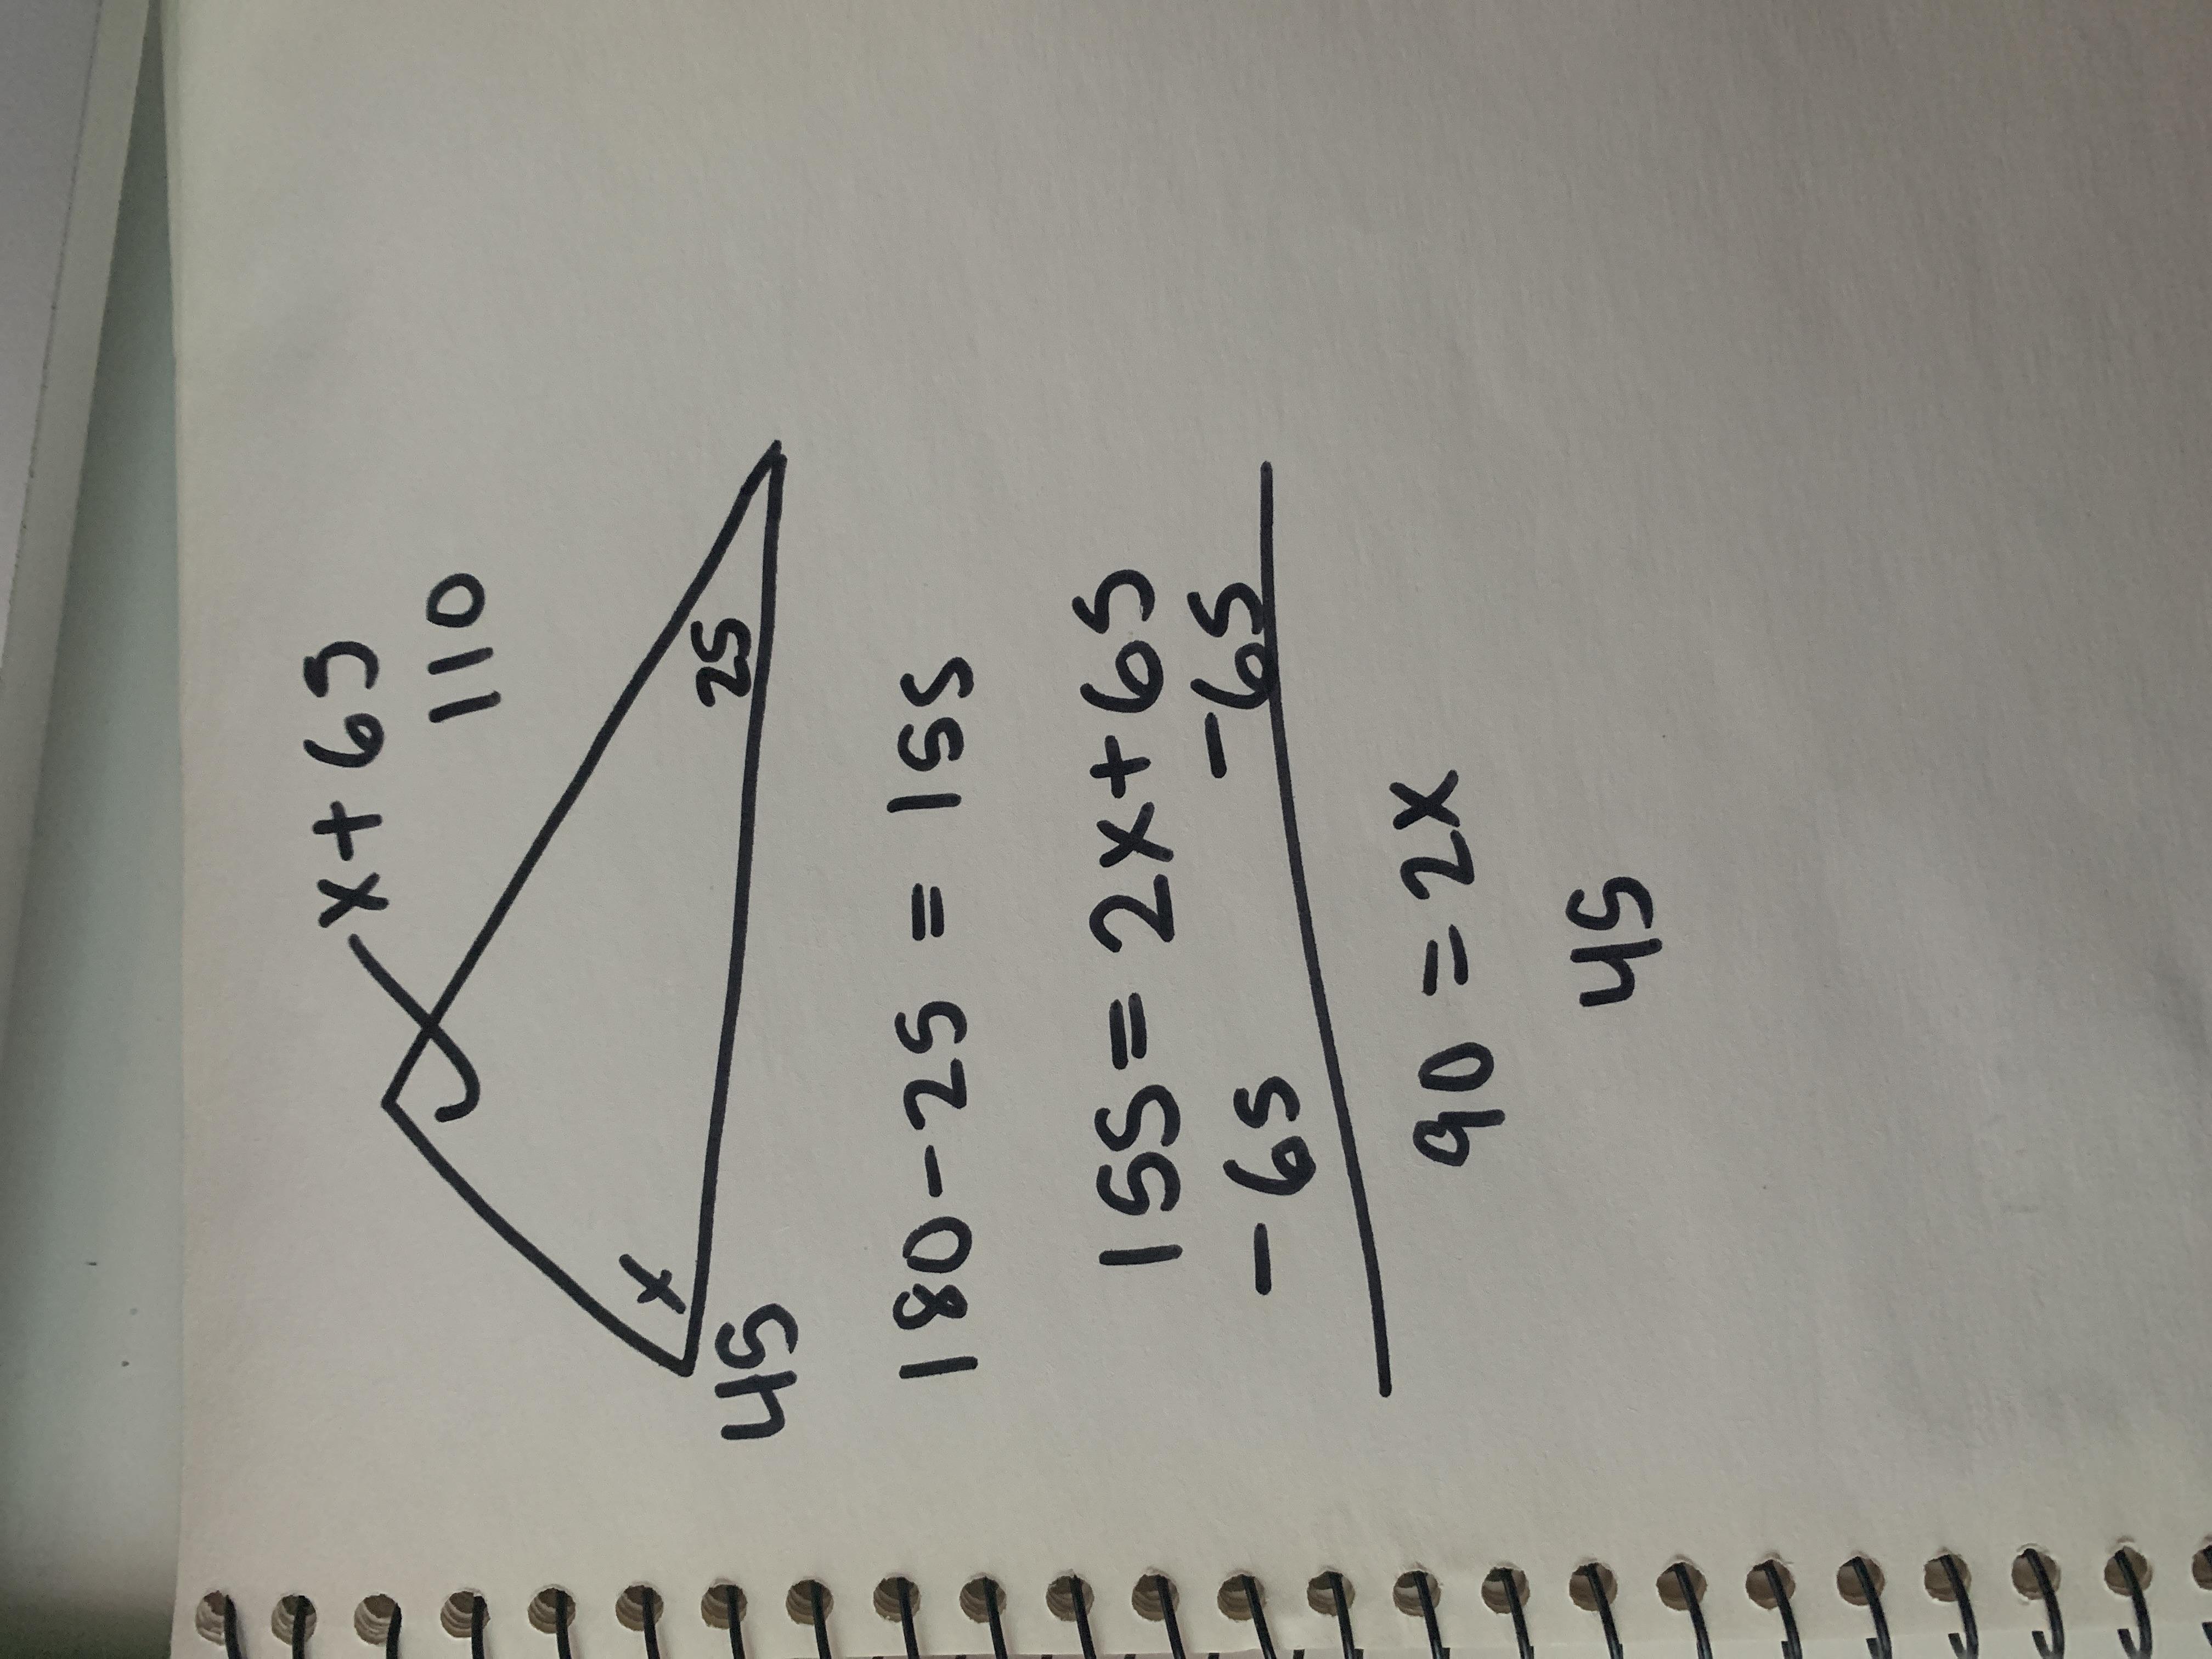 x + 65
110
x
25
45
180 - 25 = 155
155 = 2x + 65
- 65 - 65
90 = 2x
45